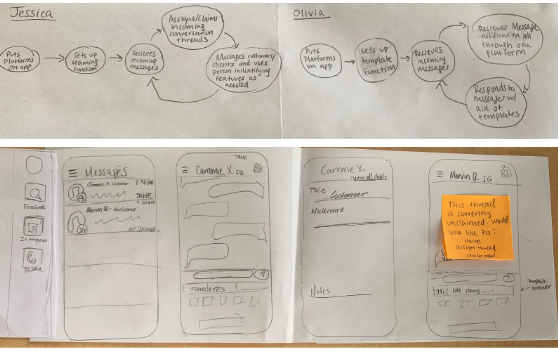 Jessica
Puts
Platforms
on app
Sets up
teaming
function
Recieves
incoming
messages
Assigns/claims
incoming
conversation
threads
Messages customers/
clients and uses
person indentifying
features as
needed
Olivia
Puts
Platforms
on app
Sets up
template
function
Recieves
incoming
messages
Reciever Message
notification all
through one
platform
Responds to
messager w/
aid of
templates
Facebook
Instagram
Messages
Carmie X.
JANE
Marvin Q.
JANE
Carmie X.
TEMPLATES
Carmie X.
view all chats
Title
Customer
Nickname
Notes
Marvin Q. IG
This thread
is currently
unclaimed would
you like to:
assign thread
Template
answer